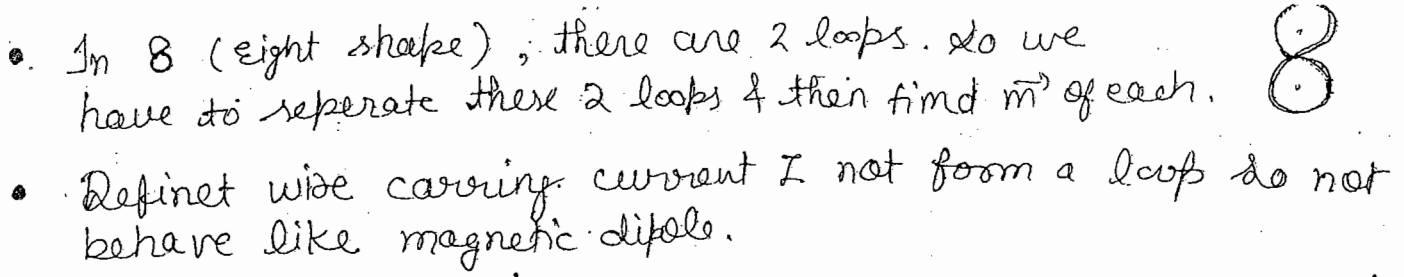 • In 8 (eight shape), there are 2 loops. So we
have to seperate these 2 loops & then find m⃗ of each.
• Definet wire carrying current I not form a loop do not
behave like magnetic dipole.